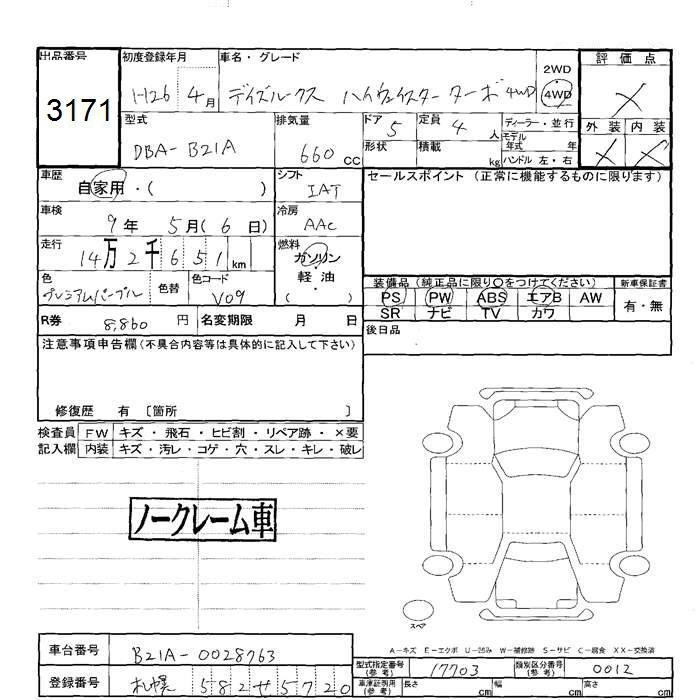 出品番号
3171
初度登録年月
H26 4月
車名・グレード
デイズルークス ハイウェイスター ターボ 4WD
2WD
4WD
評価点
X
外装 内装
X X
型式
DBA-B21A
排気量
660cc
ドア 5
定員 4人
形状
積載 kg
ディーラー・並行
モデル年式 年
ハンドル 左・右
車歴
自家用・( )
シフト
IAT
セールスポイント (正常に機能するものに限ります)
車検
9年 5月(6日)
冷房
AAC
走行
14万2千651km
燃料
ガソリン
軽・油
( )
色
プレミアムパープル
色替
色コード
V09
装備品 (純正品に限り〇をつけてください)
新車保証書
PS PW ABS エアB AW
有・無
SR ナビ TV カワ
R券 8,860円
名変期限 月 日
後日品
注意事項申告欄(不具合内容等は具体的に記入して下さい)
修復歴 有 〔箇所 〕
検査員 FW キズ・飛石・ヒビ割・リペア跡・×要
記入欄 内装 キズ・汚レ・コゲ・穴・スレ・キレ・破レ
ノークレーム車
スペア
A-キズ E-エクボ U-凹み W-補修跡 S-サビ C-腐食 XX-交換済
車台番号 B21A-0028763
登録番号 札幌 582せ5720
型式指定番号(参考) 17703
類別区分番号(参考) 0012
車庫証明用(参考) 長さ cm 幅 cm 高さ cm